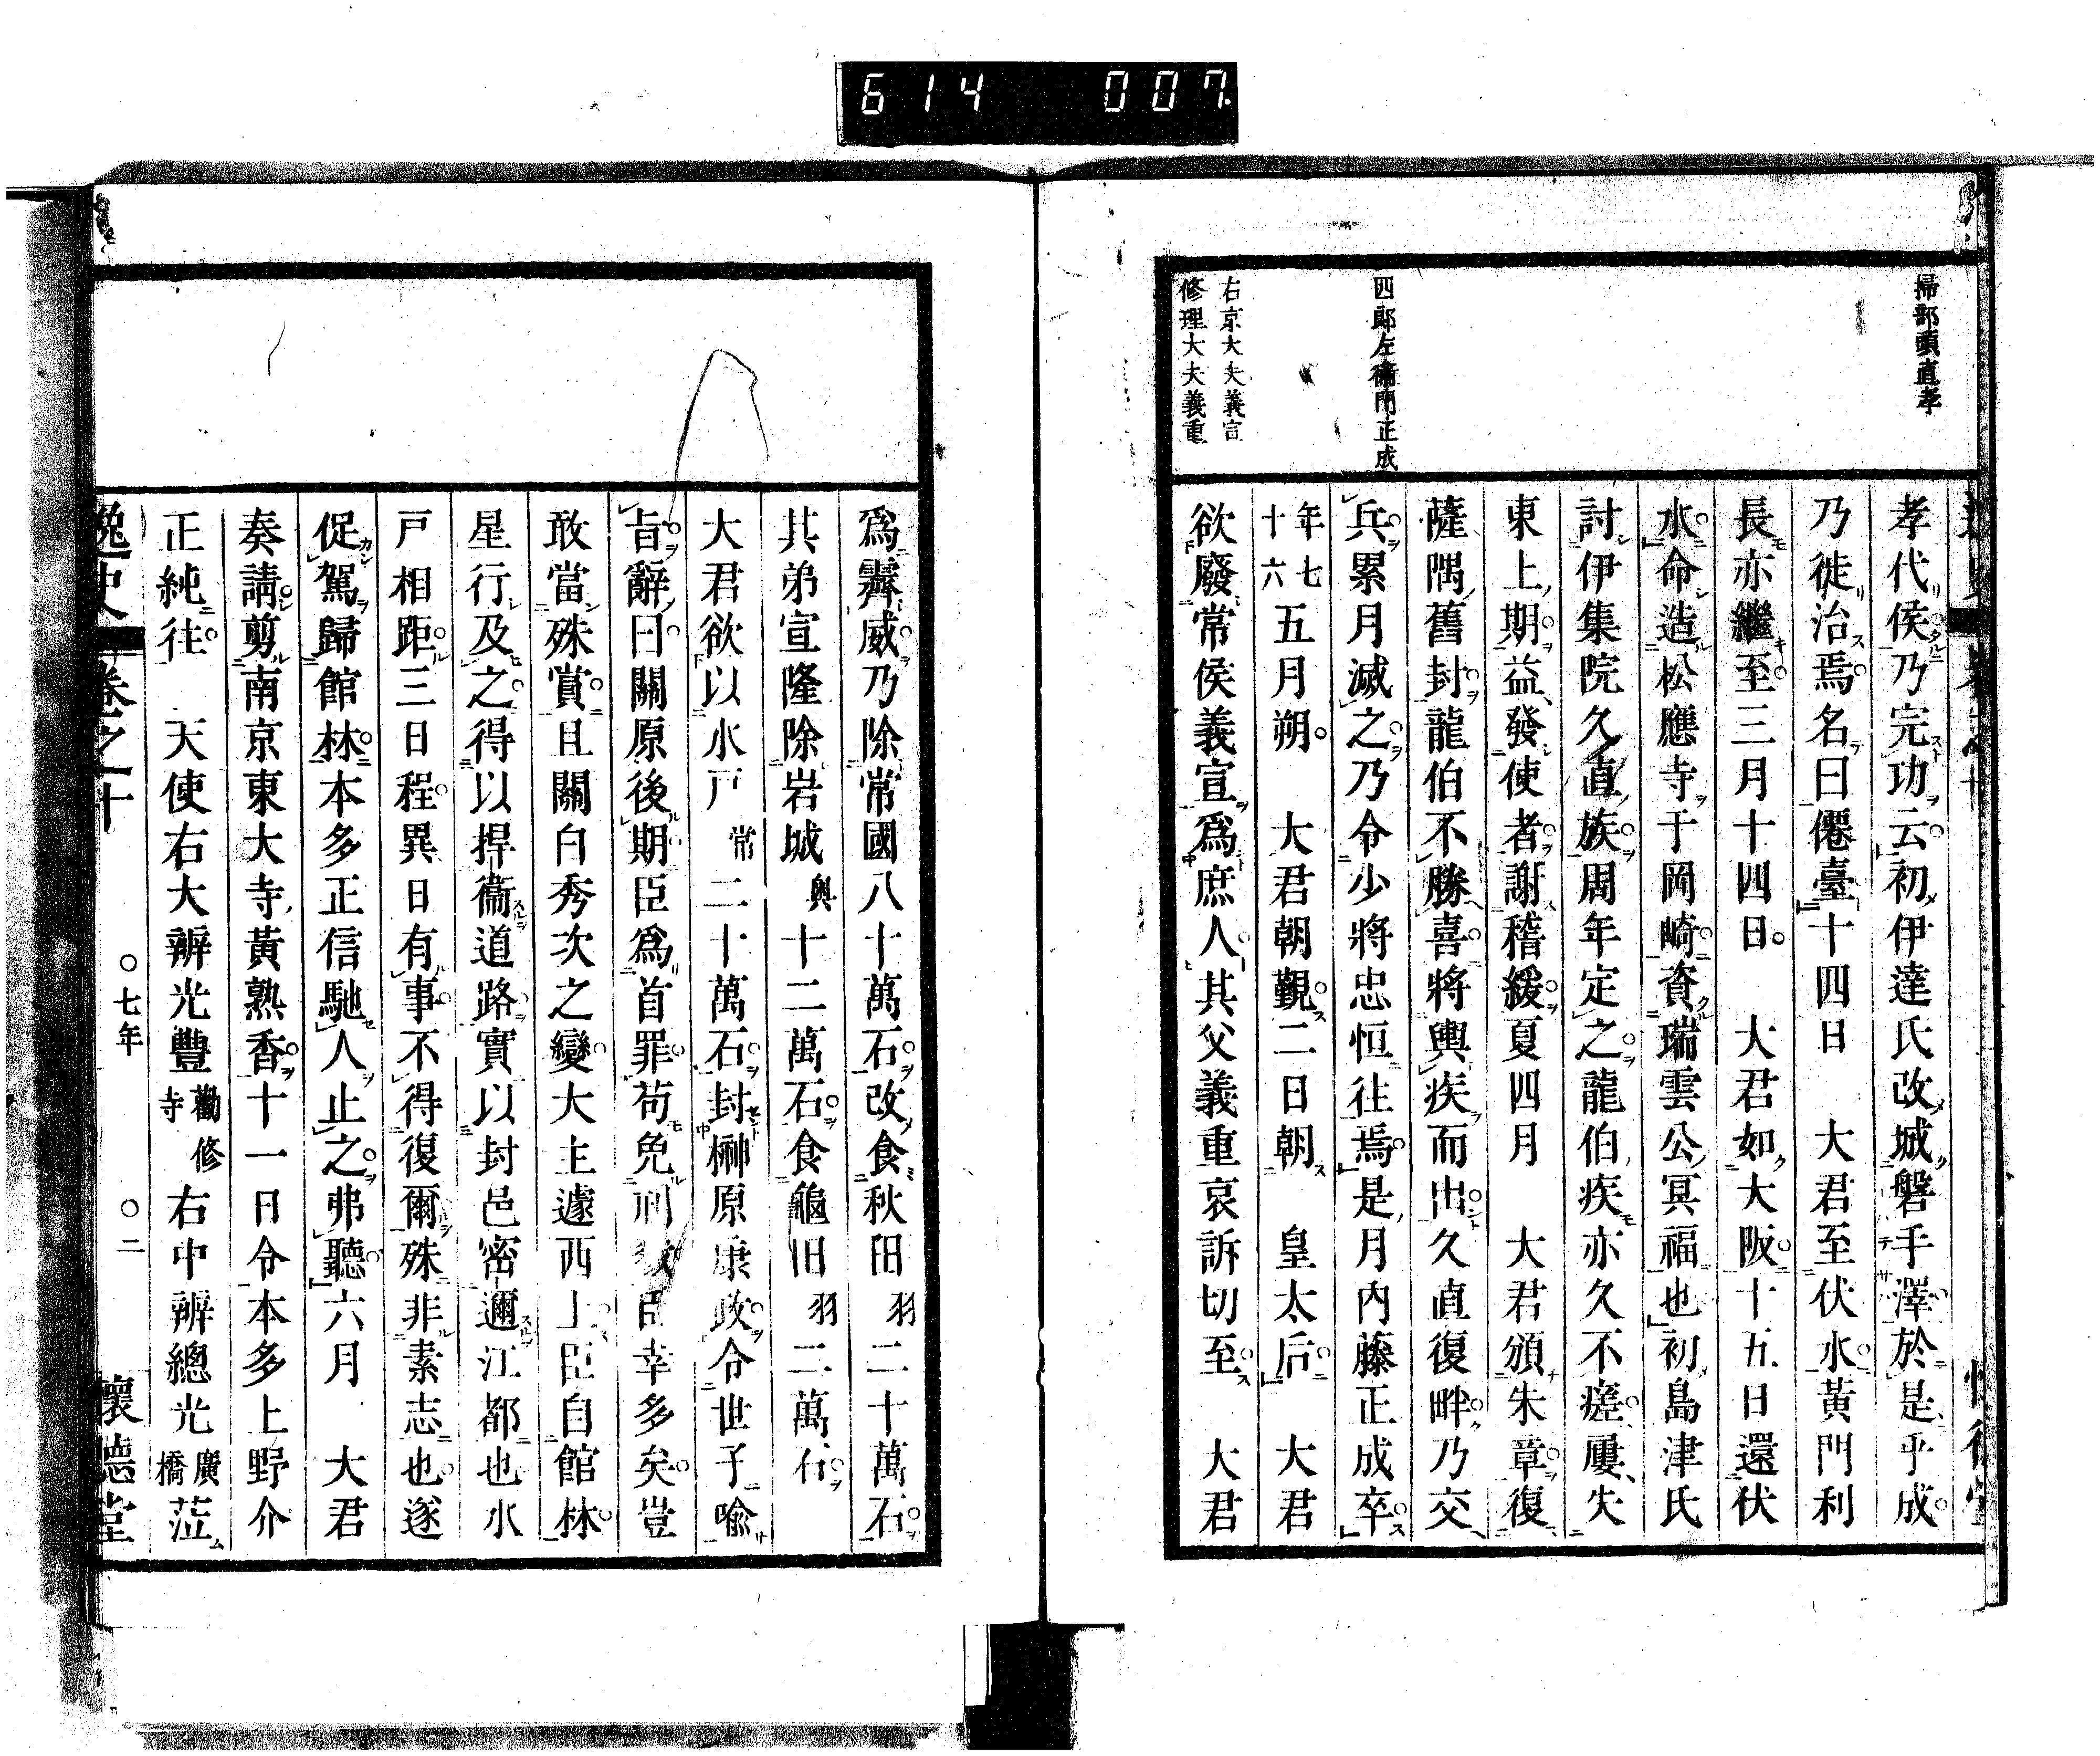 614 007
掃部頭直孝
四郎左衞門正成
右京大夫義宣
修理大夫義重
孝代侯乃完功云初伊達氏改城磐手澤於是乎成
乃徙治焉名曰僊臺十四日 大君至伏水黃門利
長亦繼至三月十四日 大君如大阪十五日還伏
水命造松應寺于岡崎資瑞雲公冥福也初島津氏
討伊集院久直族周年定之龍伯疾亦久不瘥屢失
東上期益發使者謝稽緩夏四月 大君頒朱章復
薩隅舊封龍伯不勝喜將輿疾而出久直復畔乃交
兵累月滅之乃令少將忠恒往焉是月內藤正成卒
年七十六五月朔 大君朝覲二日朝 皇太后 大君
欲廢常侯義宣爲庶人其父義重哀訴切至 大君
爲霽威乃除常國八十萬石改食秋田羽二十萬石
其弟宣隆除岩城奧十二萬石食龜田羽二萬石
大君欲以水戶常二十萬石封榊原康政令世子喩
旨辭曰關原後期臣爲首罪苟免 臣幸多矣豈
敢當殊賞且關白秀次之變大主遽西上臣自館林
星行及之得以捍衞道路實以封邑密邇江都也水
戶相距三日程異日有事不得復爾殊非素志也遂
促駕歸館林本多正信馳人止之弗聽六月 大君
奏請剪南京東大寺黃熟香十一日令本多上野介
正純往 天使右大辨光豐勸修寺右中辨總光廣橋蒞
逸史 卷之十 ○七年 ○二 懷德堂